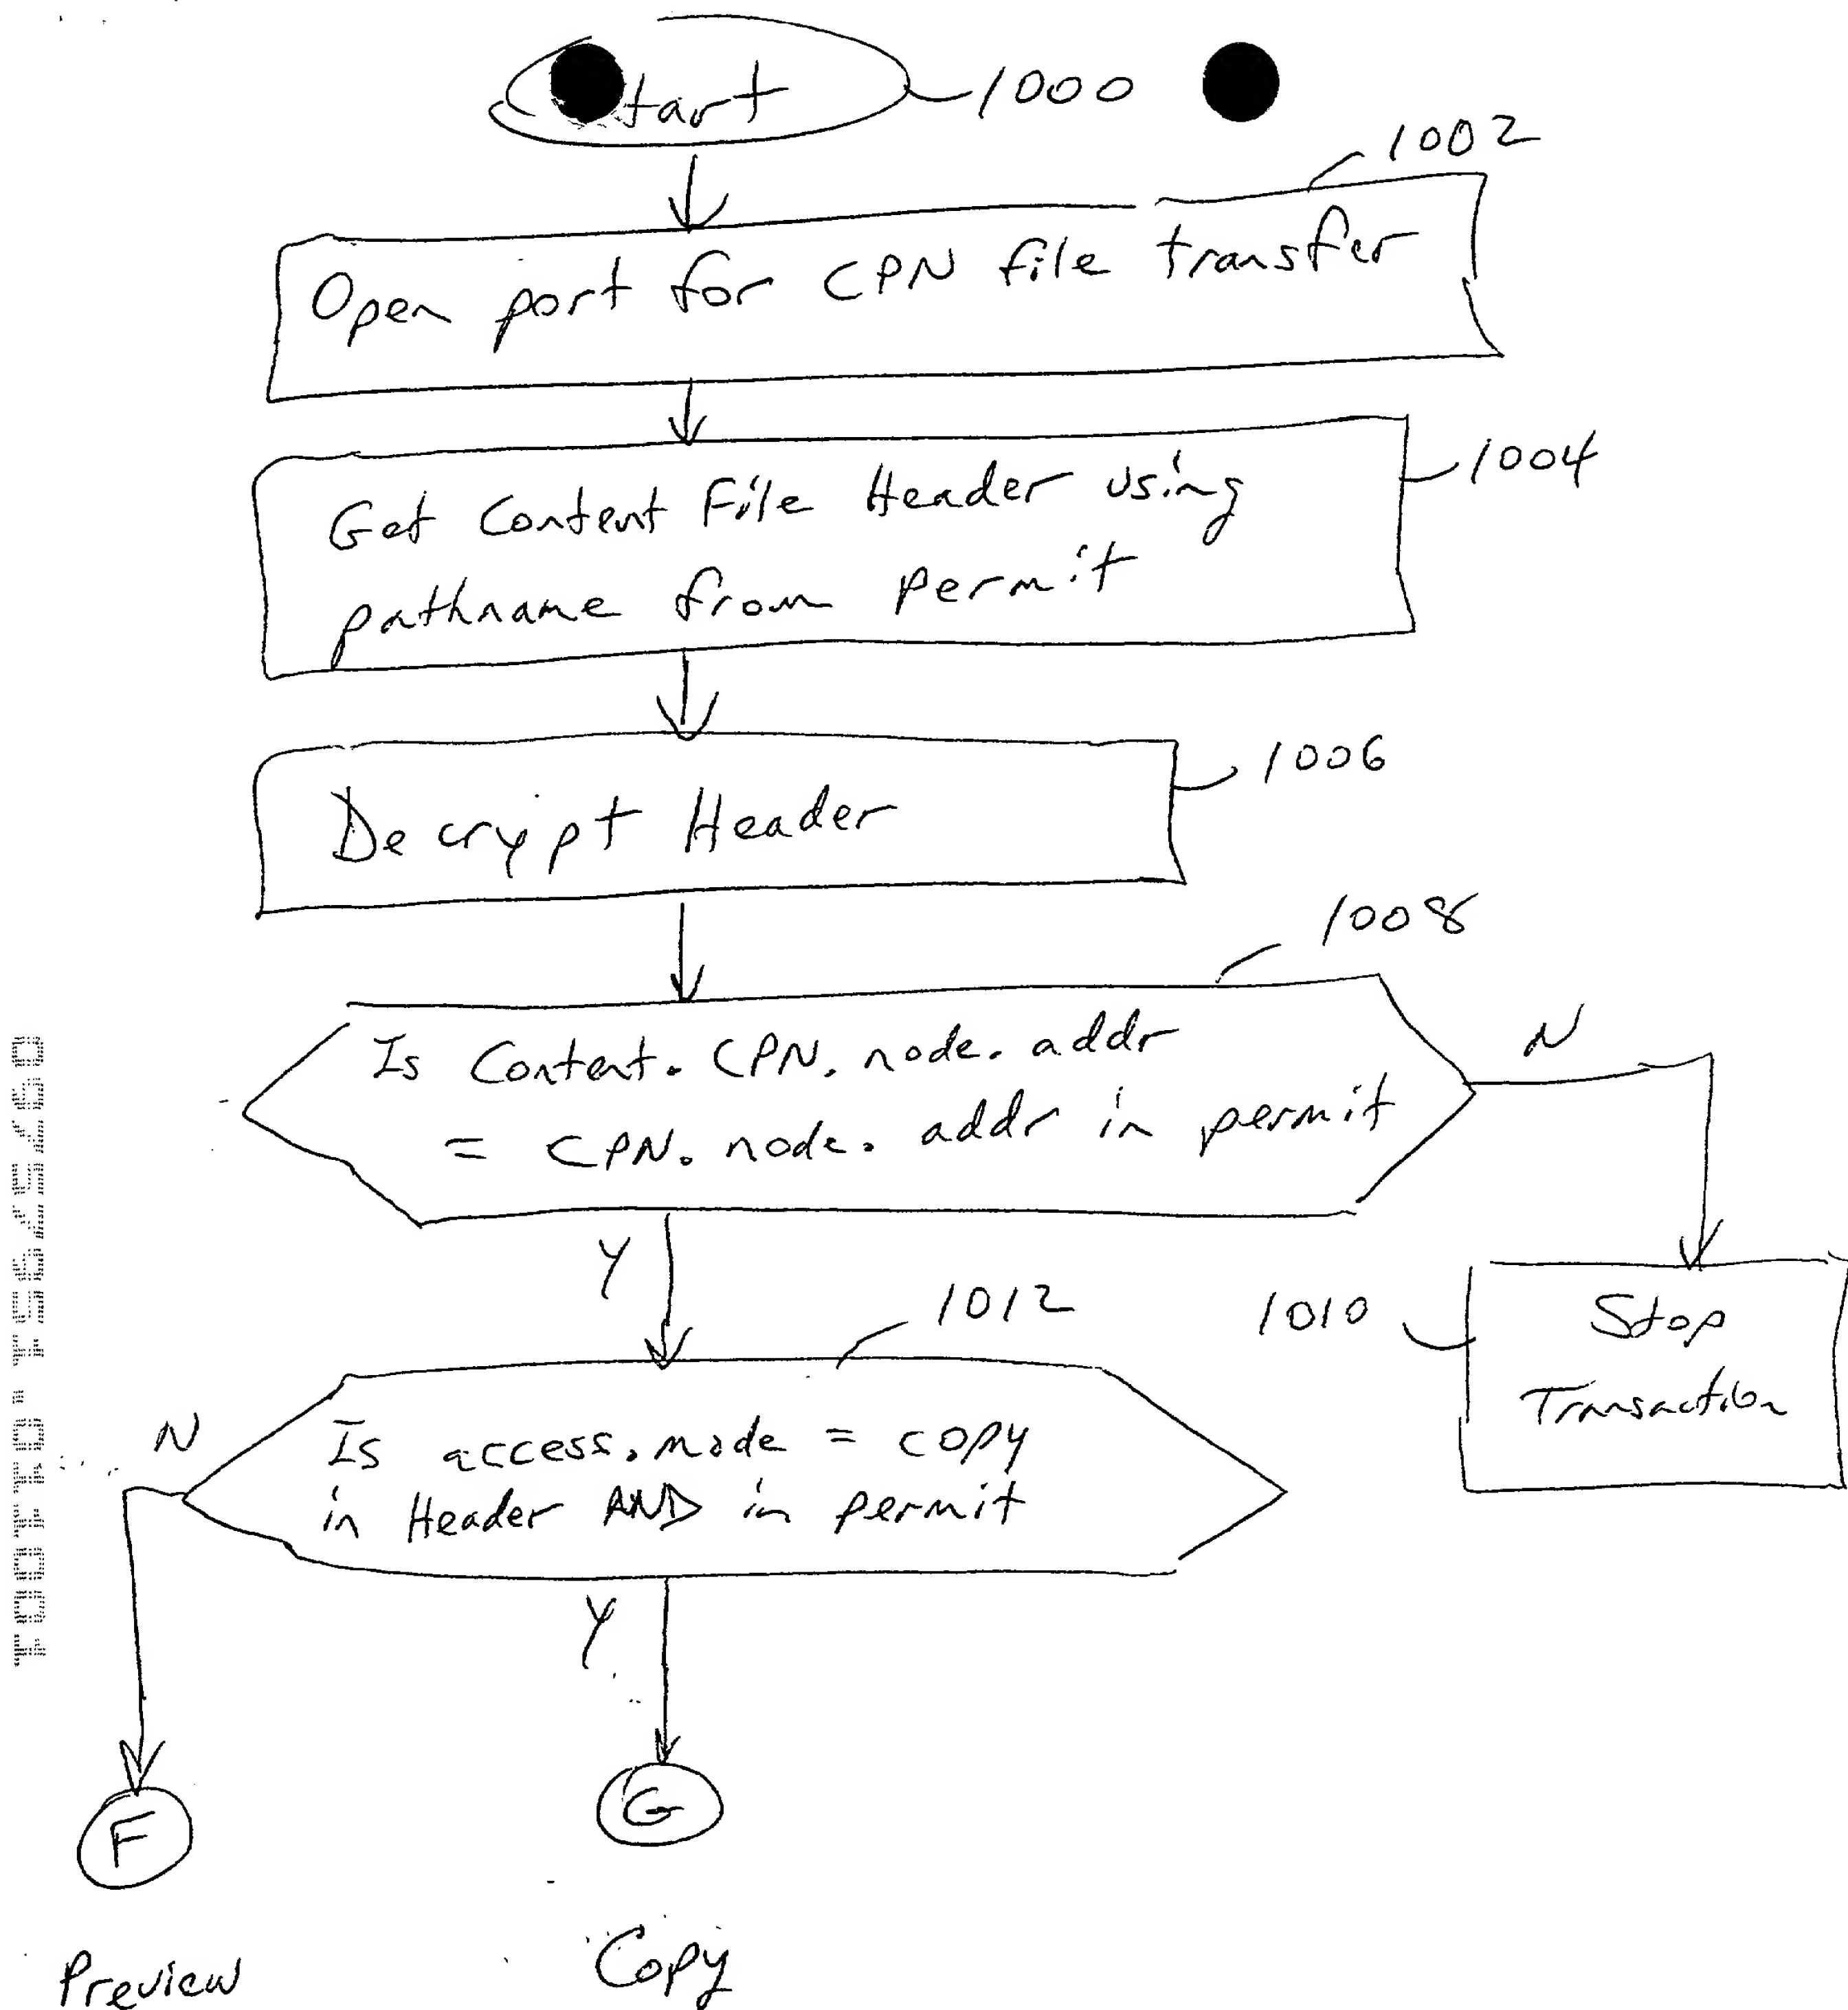 tart 1000
1002
Open port for CPN file transfer
1004
Get Content File Header using
pathname from permit
1006
Decrypt Header
1008
Is Content. CPN. node. addr
= CPN. node. addr in permit
N
Y
1010
Stop
Transaction
1012
Is access.mode = copy
in Header AND in permit
N
Y
F
G
Preview
Copy